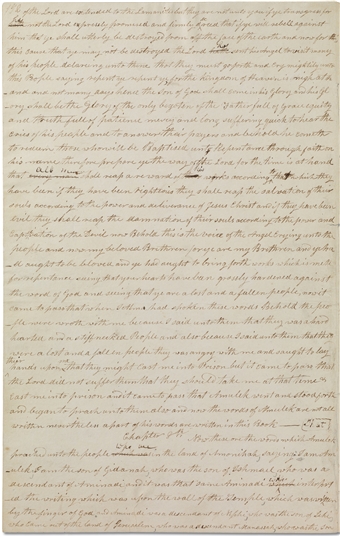 of the Lord are extended to the Lamanites but they are not unto you if ye transgress for
the Lord hath expressly promised and firmly decreed that if ye will rebel against
him that ye shall utterly be destroyed from off the face of the earth and now for
this cause that ye may not be destroyed the Lord hath sent his angel to visit many
of his people declaring unto them that they must go forth and cry mightily unto
this People saying repent ye repent ye for the kingdom of heaven is nigh at h
and and not many days hence the Son of God shall come in his glory and his gl
ory shall be the Glory of the only begotten of the Father full of grace equity
and truth full of patience mercy and long suffering quick to hear the
cries of his people and to answer their prayers and behold he cometh
to redeem those who will be Baptized unto Repentance through faith on
his name therefore prepare ye the way of the Lord for the time is at hand
that all men shall reap a reward of their works according to that which they
have been if they have been righteous they shall reap the salvation of their
souls according to the power and deliverance of Jesus Christ and if they have been
evil they shall reap the damnation of their souls according to the power and
captivation of the Devil now Behold this is the voice of the Angel crying unto the
people and now my beloved Brethren for ye are my Brethren and ye sho
ought to be beloved and ye ought to bring forth works which is meet
for repentance seeing that your hearts have been grosely hardened against
the word of God and seeing that ye are a lost and a fallen people now it
came to pass that when I Alma had spoken these words Behold the peo
ple were wroth with me because I said unto them that they was a hard
hearted and a stiffnecked People and also because I said unto them that they
were a lost and a fallen people they was angry with me and sought to lay
their hands upon me that they might cast me into Prison but it came to pass that
the Lord did not suffer them that they should take me at that time &
cast me into prison and it came to pass that Amulek went and stood forth
and began to preach unto them also and now the words of Amulek are not all
written nevertheless a part of his words are written in this Book
Chapter 8th Now these are the words which Amulek
preached unto the people who was in the land of Ammonihah saying I am Am
ulek I am the son of Gidanah who was the son of Ishmael who was a
descendant of Aminadi and it was that same Aminadi which interpret
ed the writing which was upon the wall of the Temple which was written
by the finger of God and Aminadi was a descendant of Nephi who was the son of Lehi
who came out of the land of Jerusalem who was a descendant of Manasseh who was the son